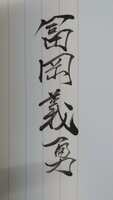 冨岡義勇